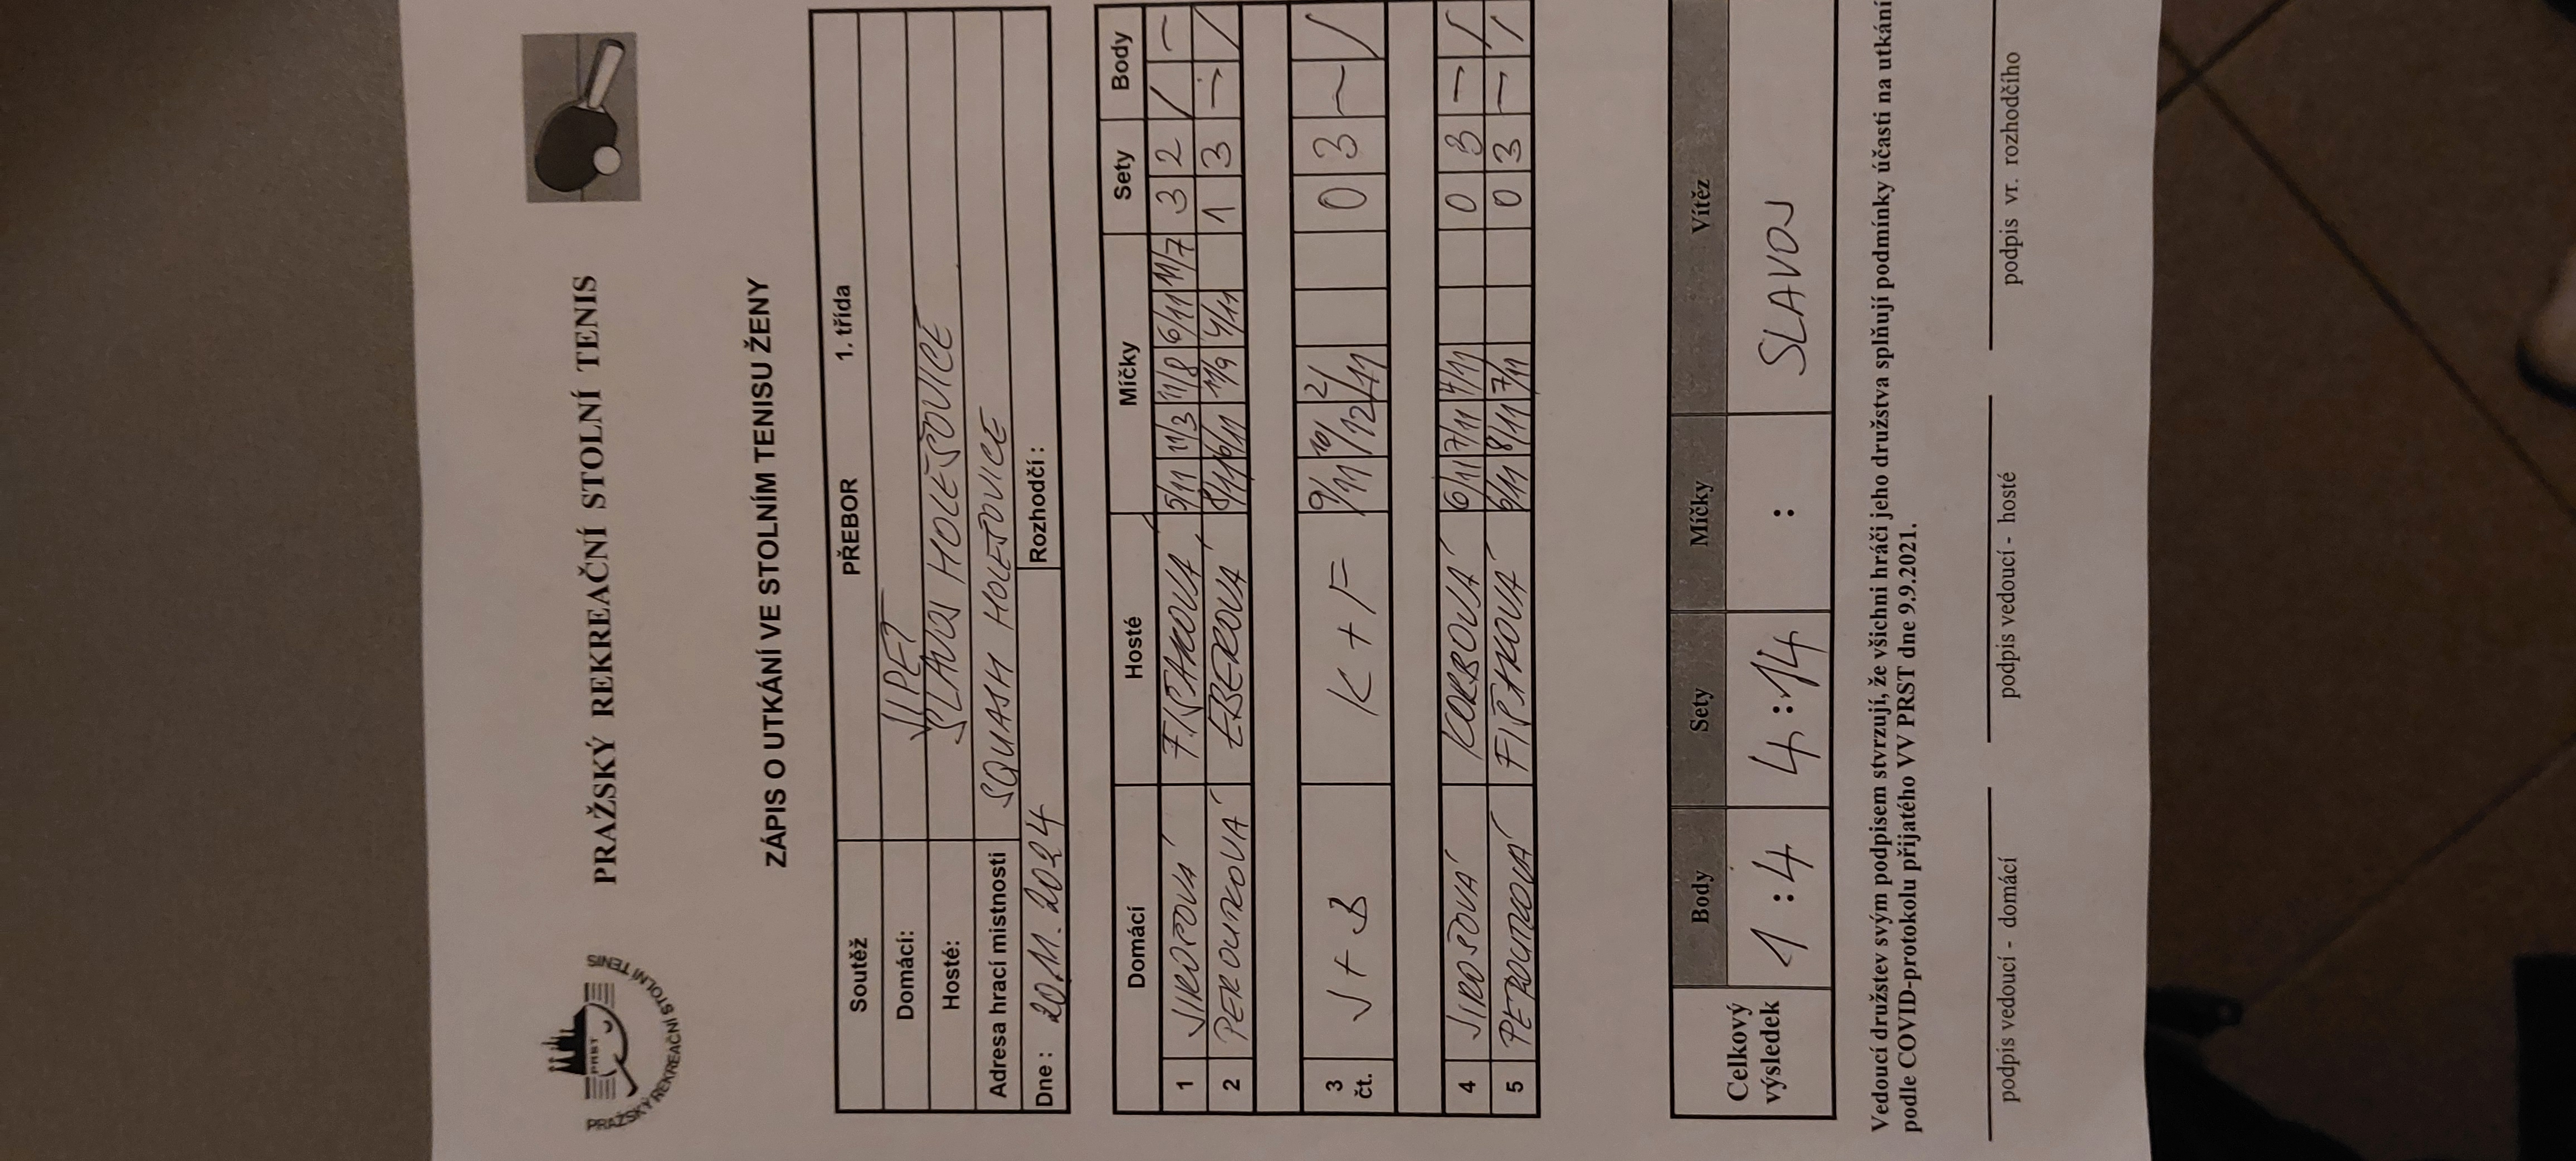 PRAŽSKÝ REKREAČNÍ STOLNÍ TENIS
PRST
PRAŽSKÝ REKREAČNÍ STOLNÍ TENIS
ZÁPIS O UTKÁNÍ VE STOLNÍM TENISU ŽENY
Soutěž PŘEBOR 1. třída
Domácí: VIPET
Hosté: SLAVOJ HOLEŠOVICE
Adresa hrací místnosti SQUASH HOLEŠOVICE
Dne : 20.11.2024 Rozhodčí :
Domácí Hosté Míčky Sety Body
1 JIROŠOVÁ FIŠÁKOVÁ 5/11 11/3 11/8 6/11 11/7 3 2 / —
2 PEROUTKOVÁ EBEROVÁ 8/11 6/11 11/9 4/11 1 3 — /
3 čt. J + B K + F 9/11 10/12 2/11 0 3 — /
4 JIROŠOVÁ KORBOVÁ 6/11 7/11 4/11 0 3 — /
5 PEROUTKOVÁ FIŠÁKOVÁ 8/11 7/11 0 3 — /
Body Sety Míčky Vítěz
Celkový výsledek 1 : 4 4 : 14 : SLAVOJ
Vedoucí družstev svým podpisem stvrzují, že všichni hráči jeho družstva splňují podmínky účasti na utkání
podle COVID-protokolu přijatého VV PRST dne 9.9.2021.
podpis vedoucí - domácí podpis vedoucí - hosté podpis vr. rozhodčího